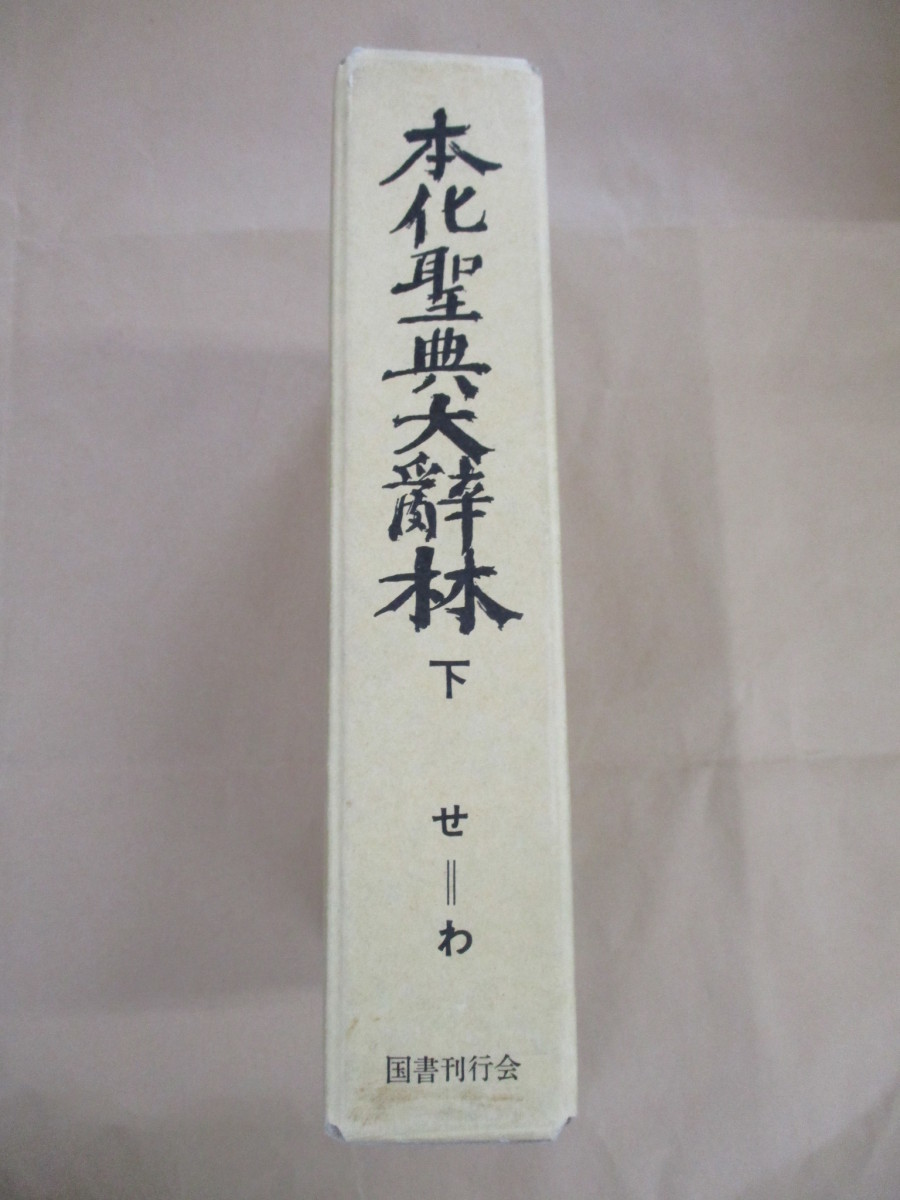 本化聖典大辭林
下
せ＝わ
国書刊行会